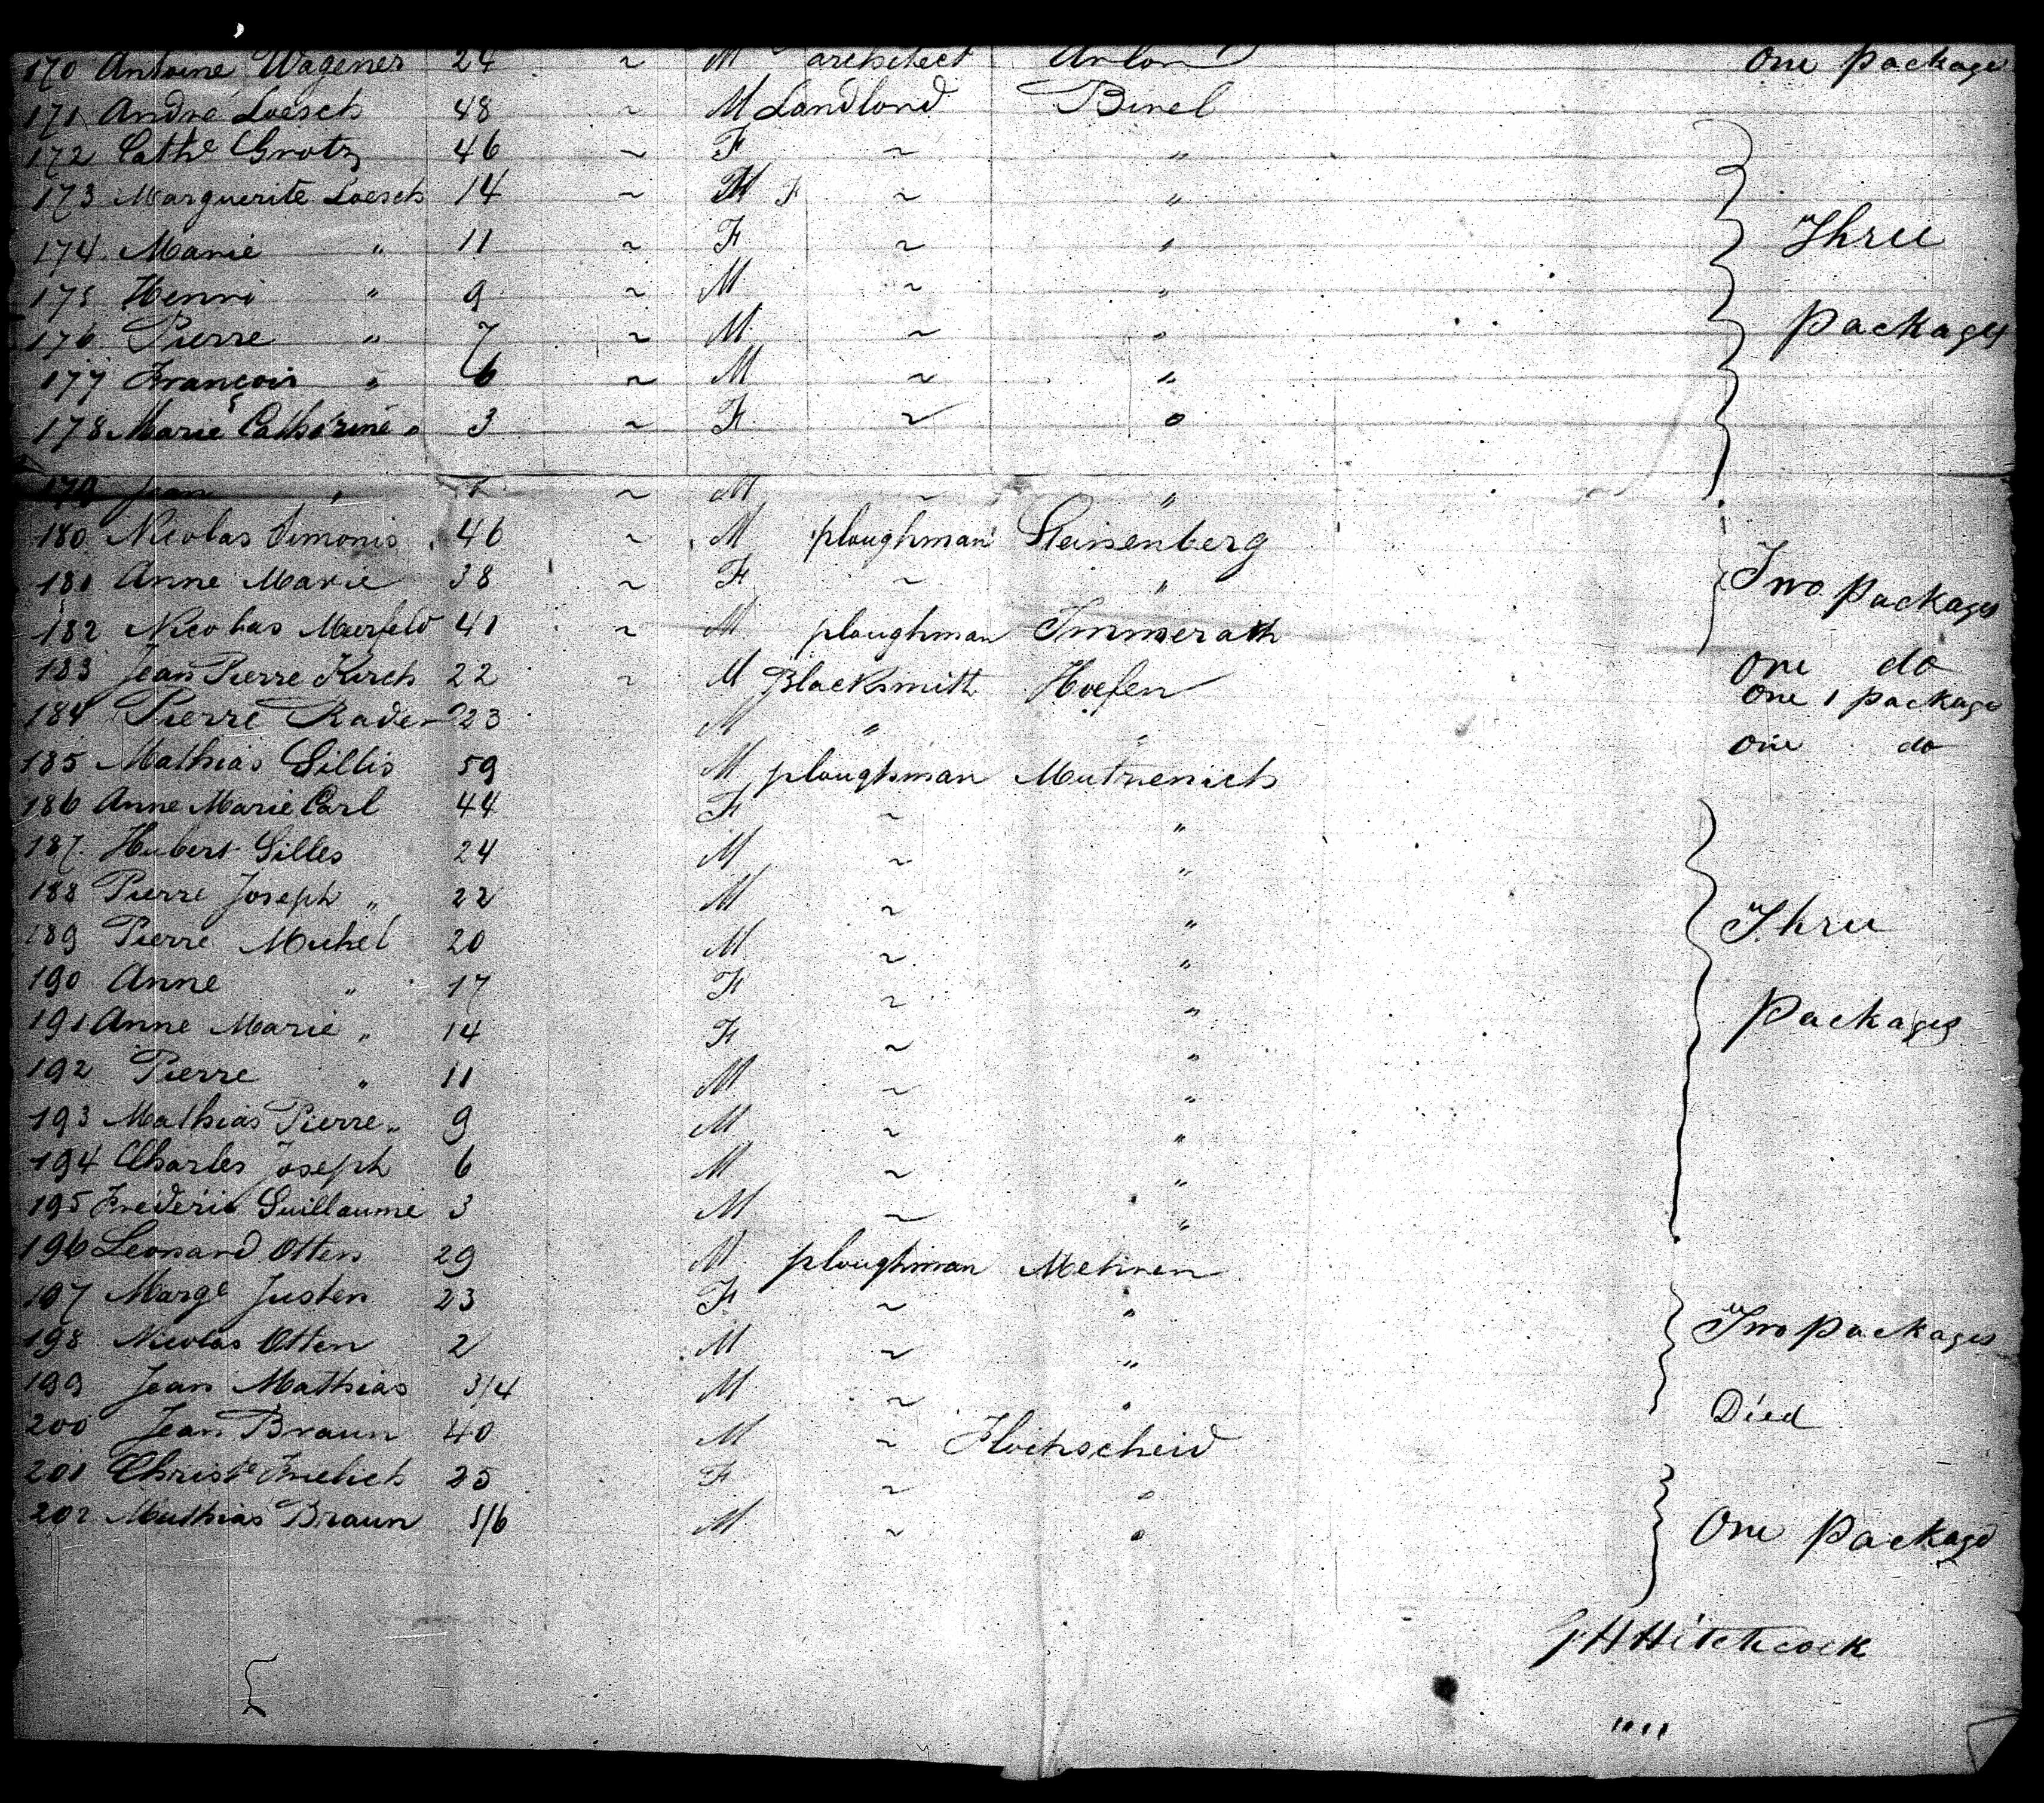 170 Antoine Wagener 24 ~ M architect Arlon One Package
171 André Loesch 48 ~ M Landlord Birel
172 Cathe Grotz 46 ~ F ~ "
173 Marguerite Loesch 14 ~ M F ~ "
174 Marie " 11 ~ F ~ " Three
175 Henri " 9 ~ M ~ "
176 Pierre " 7 ~ M ~ " Packages
177 François " 6 ~ M ~ "
178 Marie Catherine " 3 ~ F ~ "
179 Jean " ~ M ~ "
180 Nicolas Simonis 46 ~ M ploughman Steinenberg
181 Anne Marie 38 ~ F ~ " Two Packages
182 Nicolas Meerfeld 41 ~ M ploughman Immerath One do
183 Jean Pierre Kirch 22 ~ M Blacksmith Hoefen One 1 package
184 Pierre Rader 23 M " " One do
185 Mathias Gillis 59 M ploughman Mutzenich
186 Anne Marie Carl 44 F ~ "
187 Hubert Gilles 24 M ~ "
188 Pierre Joseph " 22 M ~ "
189 Pierre Michel 20 M ~ " Three
190 Anne " 17 F ~ "
191 Anne Marie " 14 F ~ " Packages
192 Pierre " 11 M ~ "
193 Mathias Pierre " 9 M ~ "
194 Charles Joseph 6 M ~ "
195 Frédéric Guillaume 3 M ~ "
196 Leonard Otten 29 M ploughman Mehren
197 Marge Justen 23 F ~ " Two Packages
198 Nicolas Otten 2 M ~ "
199 Jean Mathias 3/4 M ~ " Died
200 Jean Braun 40 M ~ Hochscheid
201 Christe 25 F ~ "
202 Mathias Braun 1/6 M ~ " One Package
J H Hitchcock